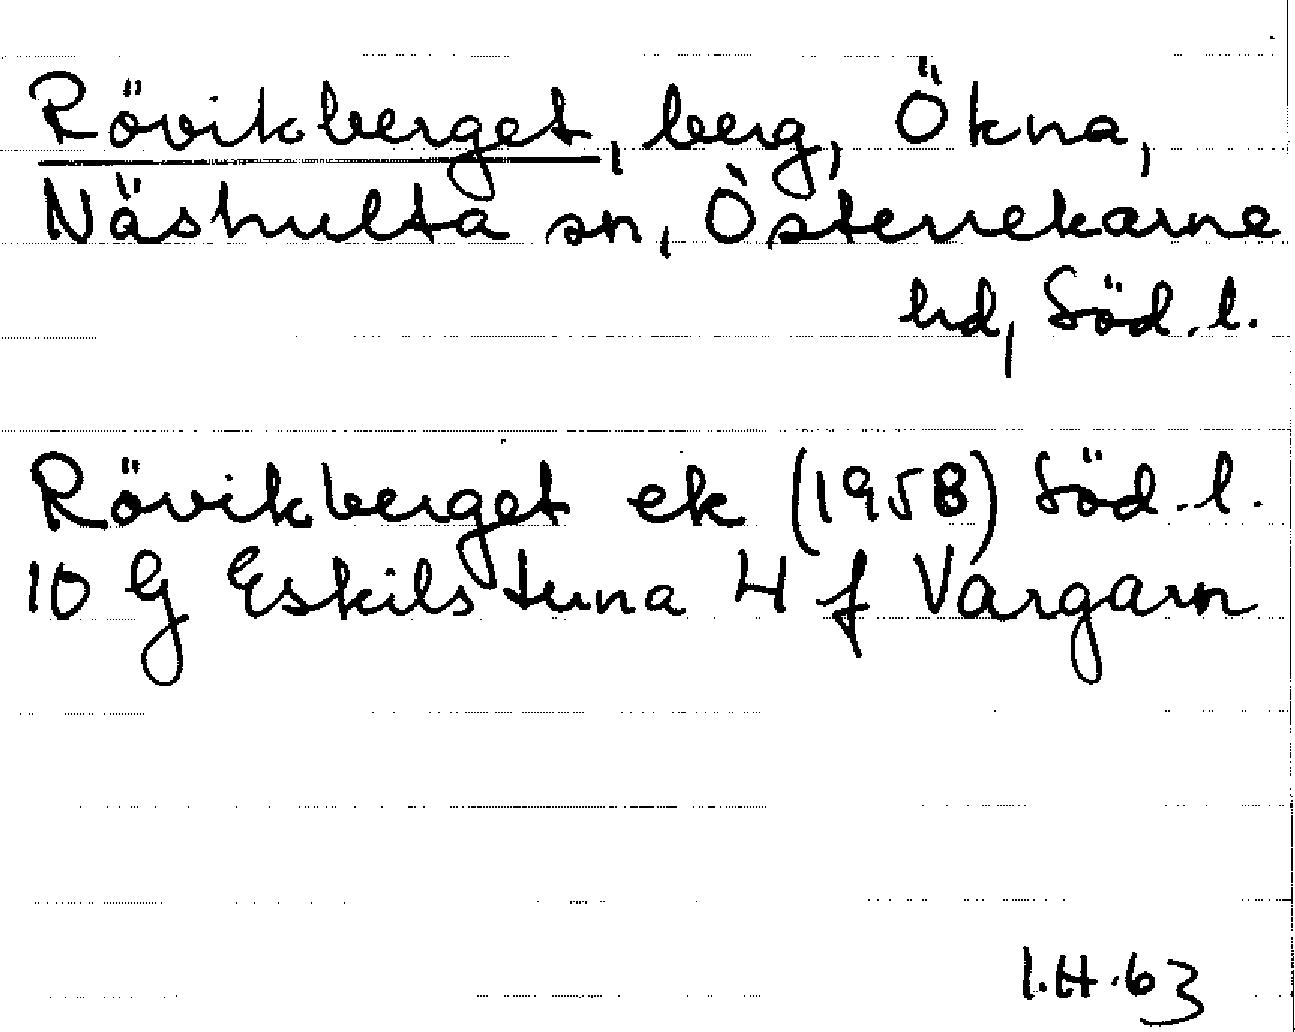 Rövikberget, berg, Ökna,
Näshulta sn, Österrekarne
hd, Söd. l.
Rövikberget ek (1958) Söd. l.
10 G Eskilstuna 4 f Vargarn
I.H. 63